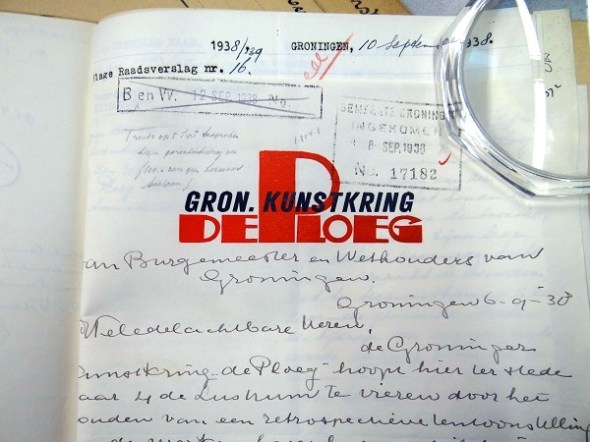 1938/39 GRONINGEN, 10 September 1938.
Raadsverslag nr. 16.
B en W. 12 SEP. 1938 No.
GEMEENTE GRONINGEN
INGEKOMEN
8 SEP. 1938
No. 17182
GRON. KUNSTKRING
DE PLOEG
an Burgemeester en Wethouders van
Groningen.
Groningen 6-9-38
Weledelachtbare Heeren,
de Groninger
unstkring "de Ploeg" hoopt hier ter stede
aar 4de Lustrum te vieren door het
ouden van een retrospectieve tentoonstelling